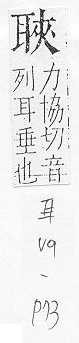 力協切音
列耳垂也
耳
V9
-
P73